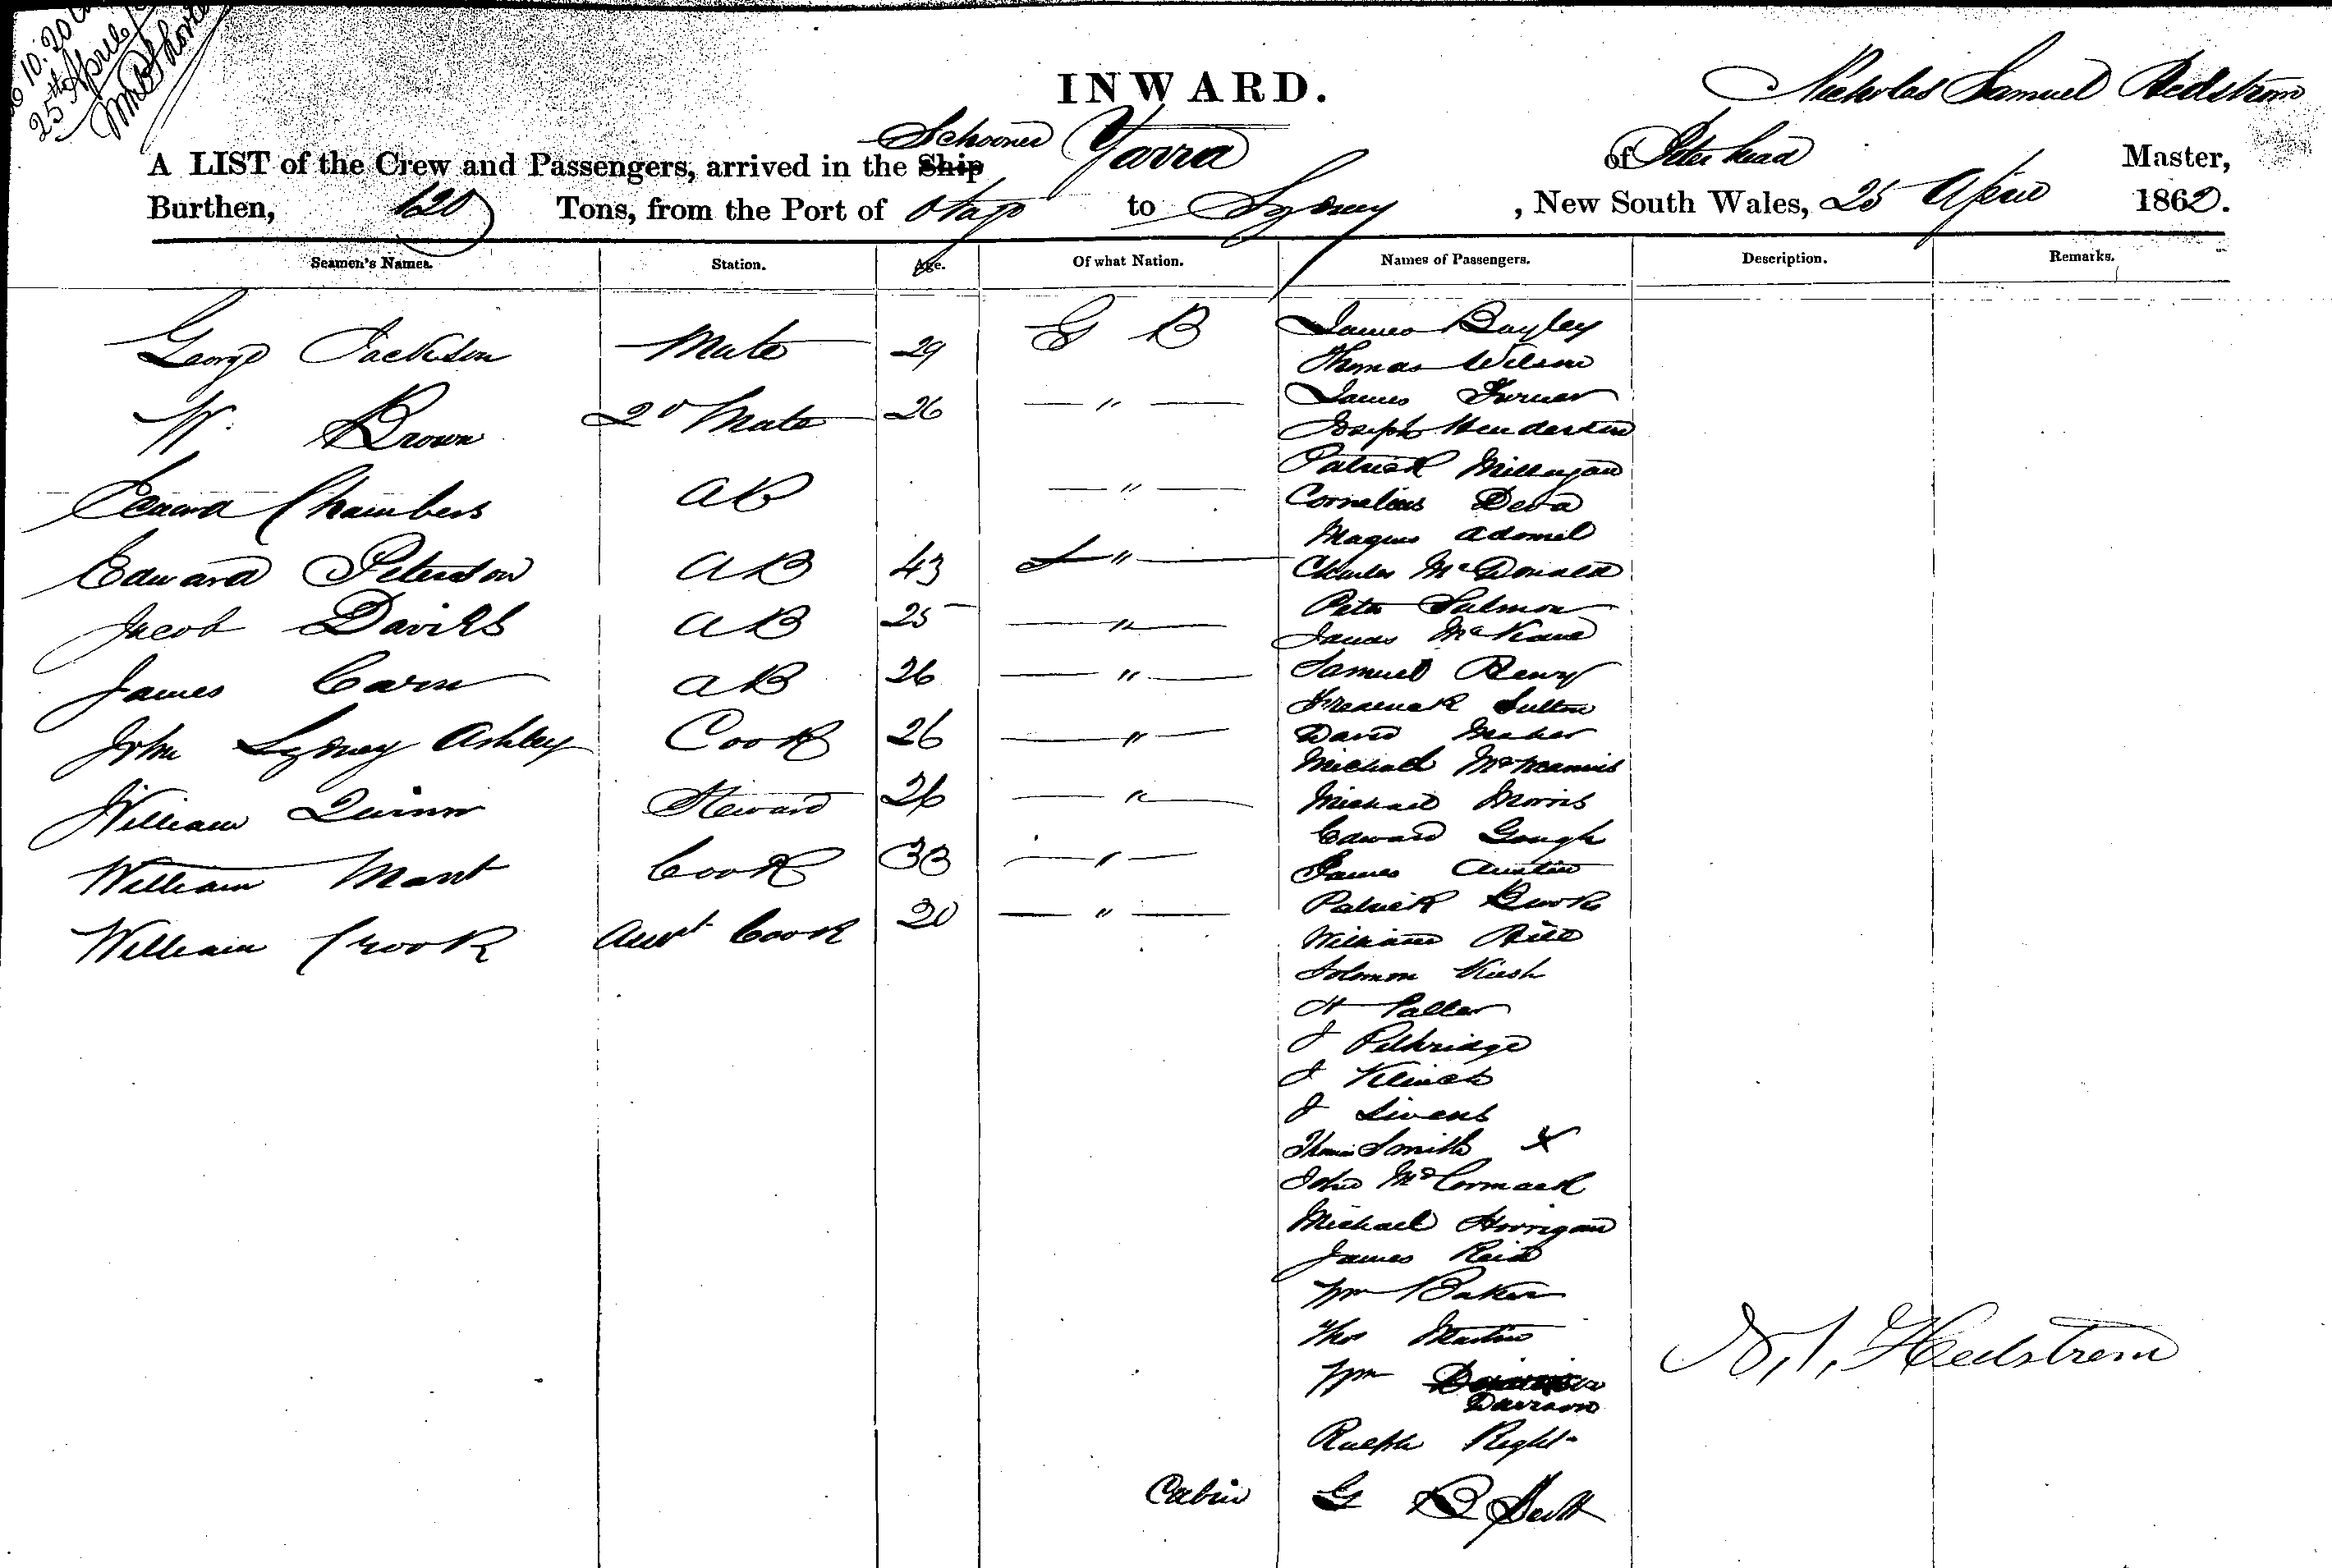 10.20
25th April
INWARD.
Nicholas Samuel Hedstrom
Schooner Yarra
A LIST of the Crew and Passengers, arrived in the Ship of Peterhead Master,
Burthen, 120 Tons, from the Port of Otago to Sydney, New South Wales, 25 April 1862.
Seamen's Names. Station. Age. Of what Nation. Names of Passengers. Description. Remarks.
George Jackson Mate 29 G B
W. Brown 2d Mate 26 — " —
Chambers AB — " —
Edward Peterson AB 43 — " —
Jacob Davids AB 25 — " —
James Carn AB 26 — " —
John Sydney Ashley Cook 26 — " —
William Quinn Steward 26 — " —
William Mant Cook 33 — " —
William Crook Assst Cook 20 — " —
James Bayley
Thomas Wilson
James Turner
Joseph Henderson
Patrick Millugan
Cornelius Deva
Magnus Adomil
Charles McDonald
Peter Salmon
James McKane
Samuel Henry
Frederick Sutton
David Maher
Michael McManus
Michael Morris
Edward Gough
James Austin
Patrick Burke
William Hill
Solomon Kush
H Palter
J Pethridge
J Klinck
J Sivens
Thomas Smith X
John McCormack
Michael Horrigan
James Reid
Wm Baker
Thos Martin
Wm
Davison
Ralph Right
Cabin G B Scott
N. S. Hedstrom